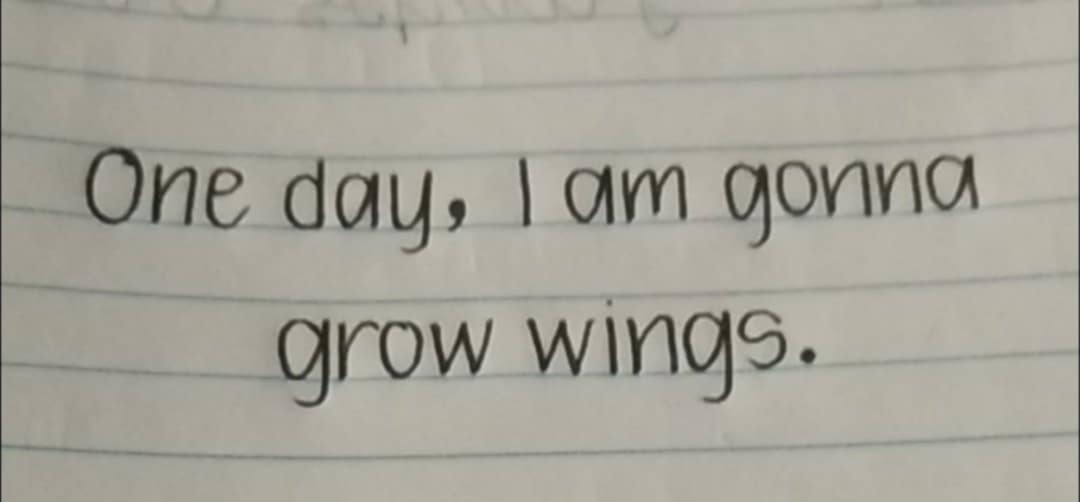 One day, I am gonna
grow wings.